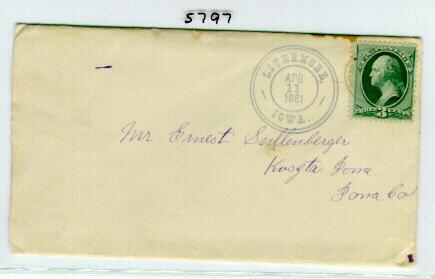 5797
LIVERMORE,
APR
11
1881
IOWA.
U.S. POSTAGE
THREE 3 CENTS
Mr Ernest Sullenberger
Koszta Iowa
Iowa Co